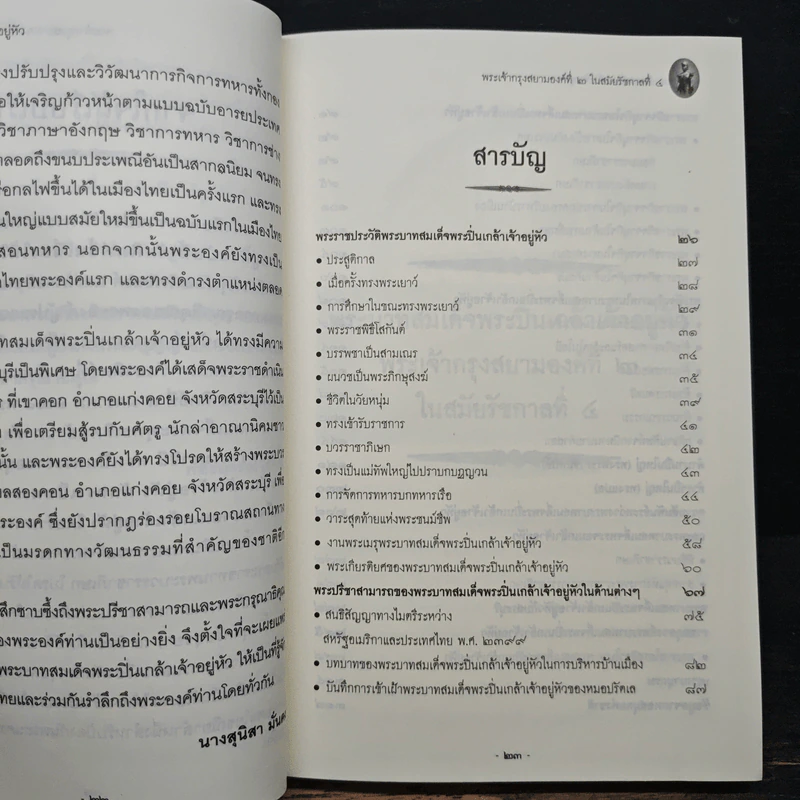 อยู่หัว
งปรับปรุงและวิวัฒนาการกิจการทหารทั้งกอง
อให้เจริญก้าวหน้าตามแบบฉบับอารยประเทศ
วิชาภาษาอังกฤษ วิชาการทหาร วิชาการช่าง
ตลอดถึงขนบประเพณีอันเป็นสากลนิยม จนทรง
รือกลไฟขึ้นได้ในเมืองไทยเป็นครั้งแรก และทรง
นใหญ่แบบสมัยใหม่ขึ้นเป็นฉบับแรกในเมืองไทย
สอนทหาร นอกจากนั้นพระองค์ยังทรงเป็น
ไทยพระองค์แรก และทรงดำรงตำแหน่งตลอด
ทสมเด็จพระปิ่นเกล้าเจ้าอยู่หัว ได้ทรงมีความ
บุรีเป็นพิเศษ โดยพระองค์ได้เสด็จพระราชดำเนิน
ร ที่เขาคอก อำเภอแก่งคอย จังหวัดสระบุรีไว้เป็น
เพื่อเตรียมสู้รบกับศัตรู นักล่าอาณานิคมชาว
นั้น และพระองค์ยังได้ทรงโปรดให้สร้างพระบวร
ลสองคอน อำเภอแก่งคอย จังหวัดสระบุรี เพื่อ
ระองค์ ซึ่งยังปรากฏร่องรอยโบราณสถานทาง
เป็นมรดกทางวัฒนธรรมที่สำคัญของชาติอีก
สึกซาบซึ้งถึงพระปรีชาสามารถและพระกรุณาธิคุณ
องพระองค์ท่านเป็นอย่างยิ่ง จึงตั้งใจที่จะเผยแพร่
ระบาทสมเด็จพระปิ่นเกล้าเจ้าอยู่หัว ให้เป็นที่รู้จัก
ไทยและร่วมกันรำลึกถึงพระองค์ท่านโดยทั่วกัน
นางสุนิสา มั่นค
- ๒๒
พระเจ้ากรุงสยามองค์ที่ ๒ ในสมัยรัชกาลที่ ๔
สารบัญ
พระราชประวัติพระบาทสมเด็จพระปิ่นเกล้าเจ้าอยู่หัว ๒๖
• ประสูติกาล ๒๗
• เมื่อครั้งทรงพระเยาว์ ๒๘
• การศึกษาในขณะทรงพระเยาว์ ๒๙
• พระราชพิธีโสกันต์ ๓๑
• บรรพชาเป็นสามเณร ๓๔
• ผนวชเป็นพระภิกษุสงฆ์ ๓๕
• ชีวิตในวัยหนุ่ม ๓๙
• ทรงเข้ารับราชการ ๔๑
• บวรราชาภิเษก ๔๒
• ทรงเป็นแม่ทัพใหญ่ไปปราบกบฏญวน ๔๓
• การจัดการทหารบกทหารเรือ ๔๔
• วาระสุดท้ายแห่งพระชนม์ชีพ ๕๐
• งานพระเมรุพระบาทสมเด็จพระปิ่นเกล้าเจ้าอยู่หัว ๕๘
• พระเกียรติยศของพระบาทสมเด็จพระปิ่นเกล้าเจ้าอยู่หัว ๖๐
พระปรีชาสามารถของพระบาทสมเด็จพระปิ่นเกล้าเจ้าอยู่หัวในด้านต่างๆ ๖๗
• สนธิสัญญาทางไมตรีระหว่าง ๗๕
สหรัฐอเมริกาและประเทศไทย พ.ศ. ๒๓๙๙
• บทบาทของพระบาทสมเด็จพระปิ่นเกล้าเจ้าอยู่หัวในการบริหารบ้านเมือง ๘๒
• บันทึกการเข้าเฝ้าพระบาทสมเด็จพระปิ่นเกล้าเจ้าอยู่หัวของหมอบรัดเล ๘๗
- ๒๓ -